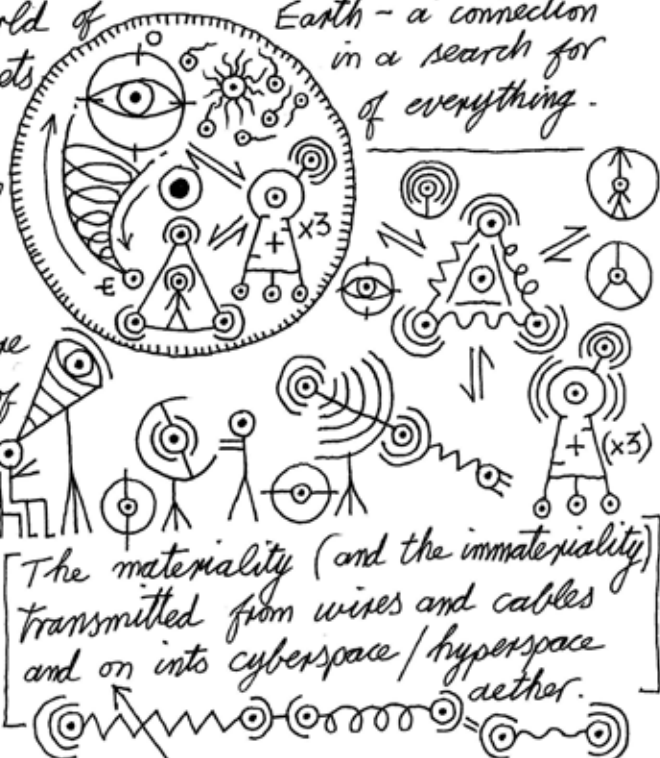 Earth - a connection
in a search for
of everything.
x3
(x3)
[The materiality (and the immateriality)
transmitted from wires and cables
and on into cyberspace / hyperspace
aether.]